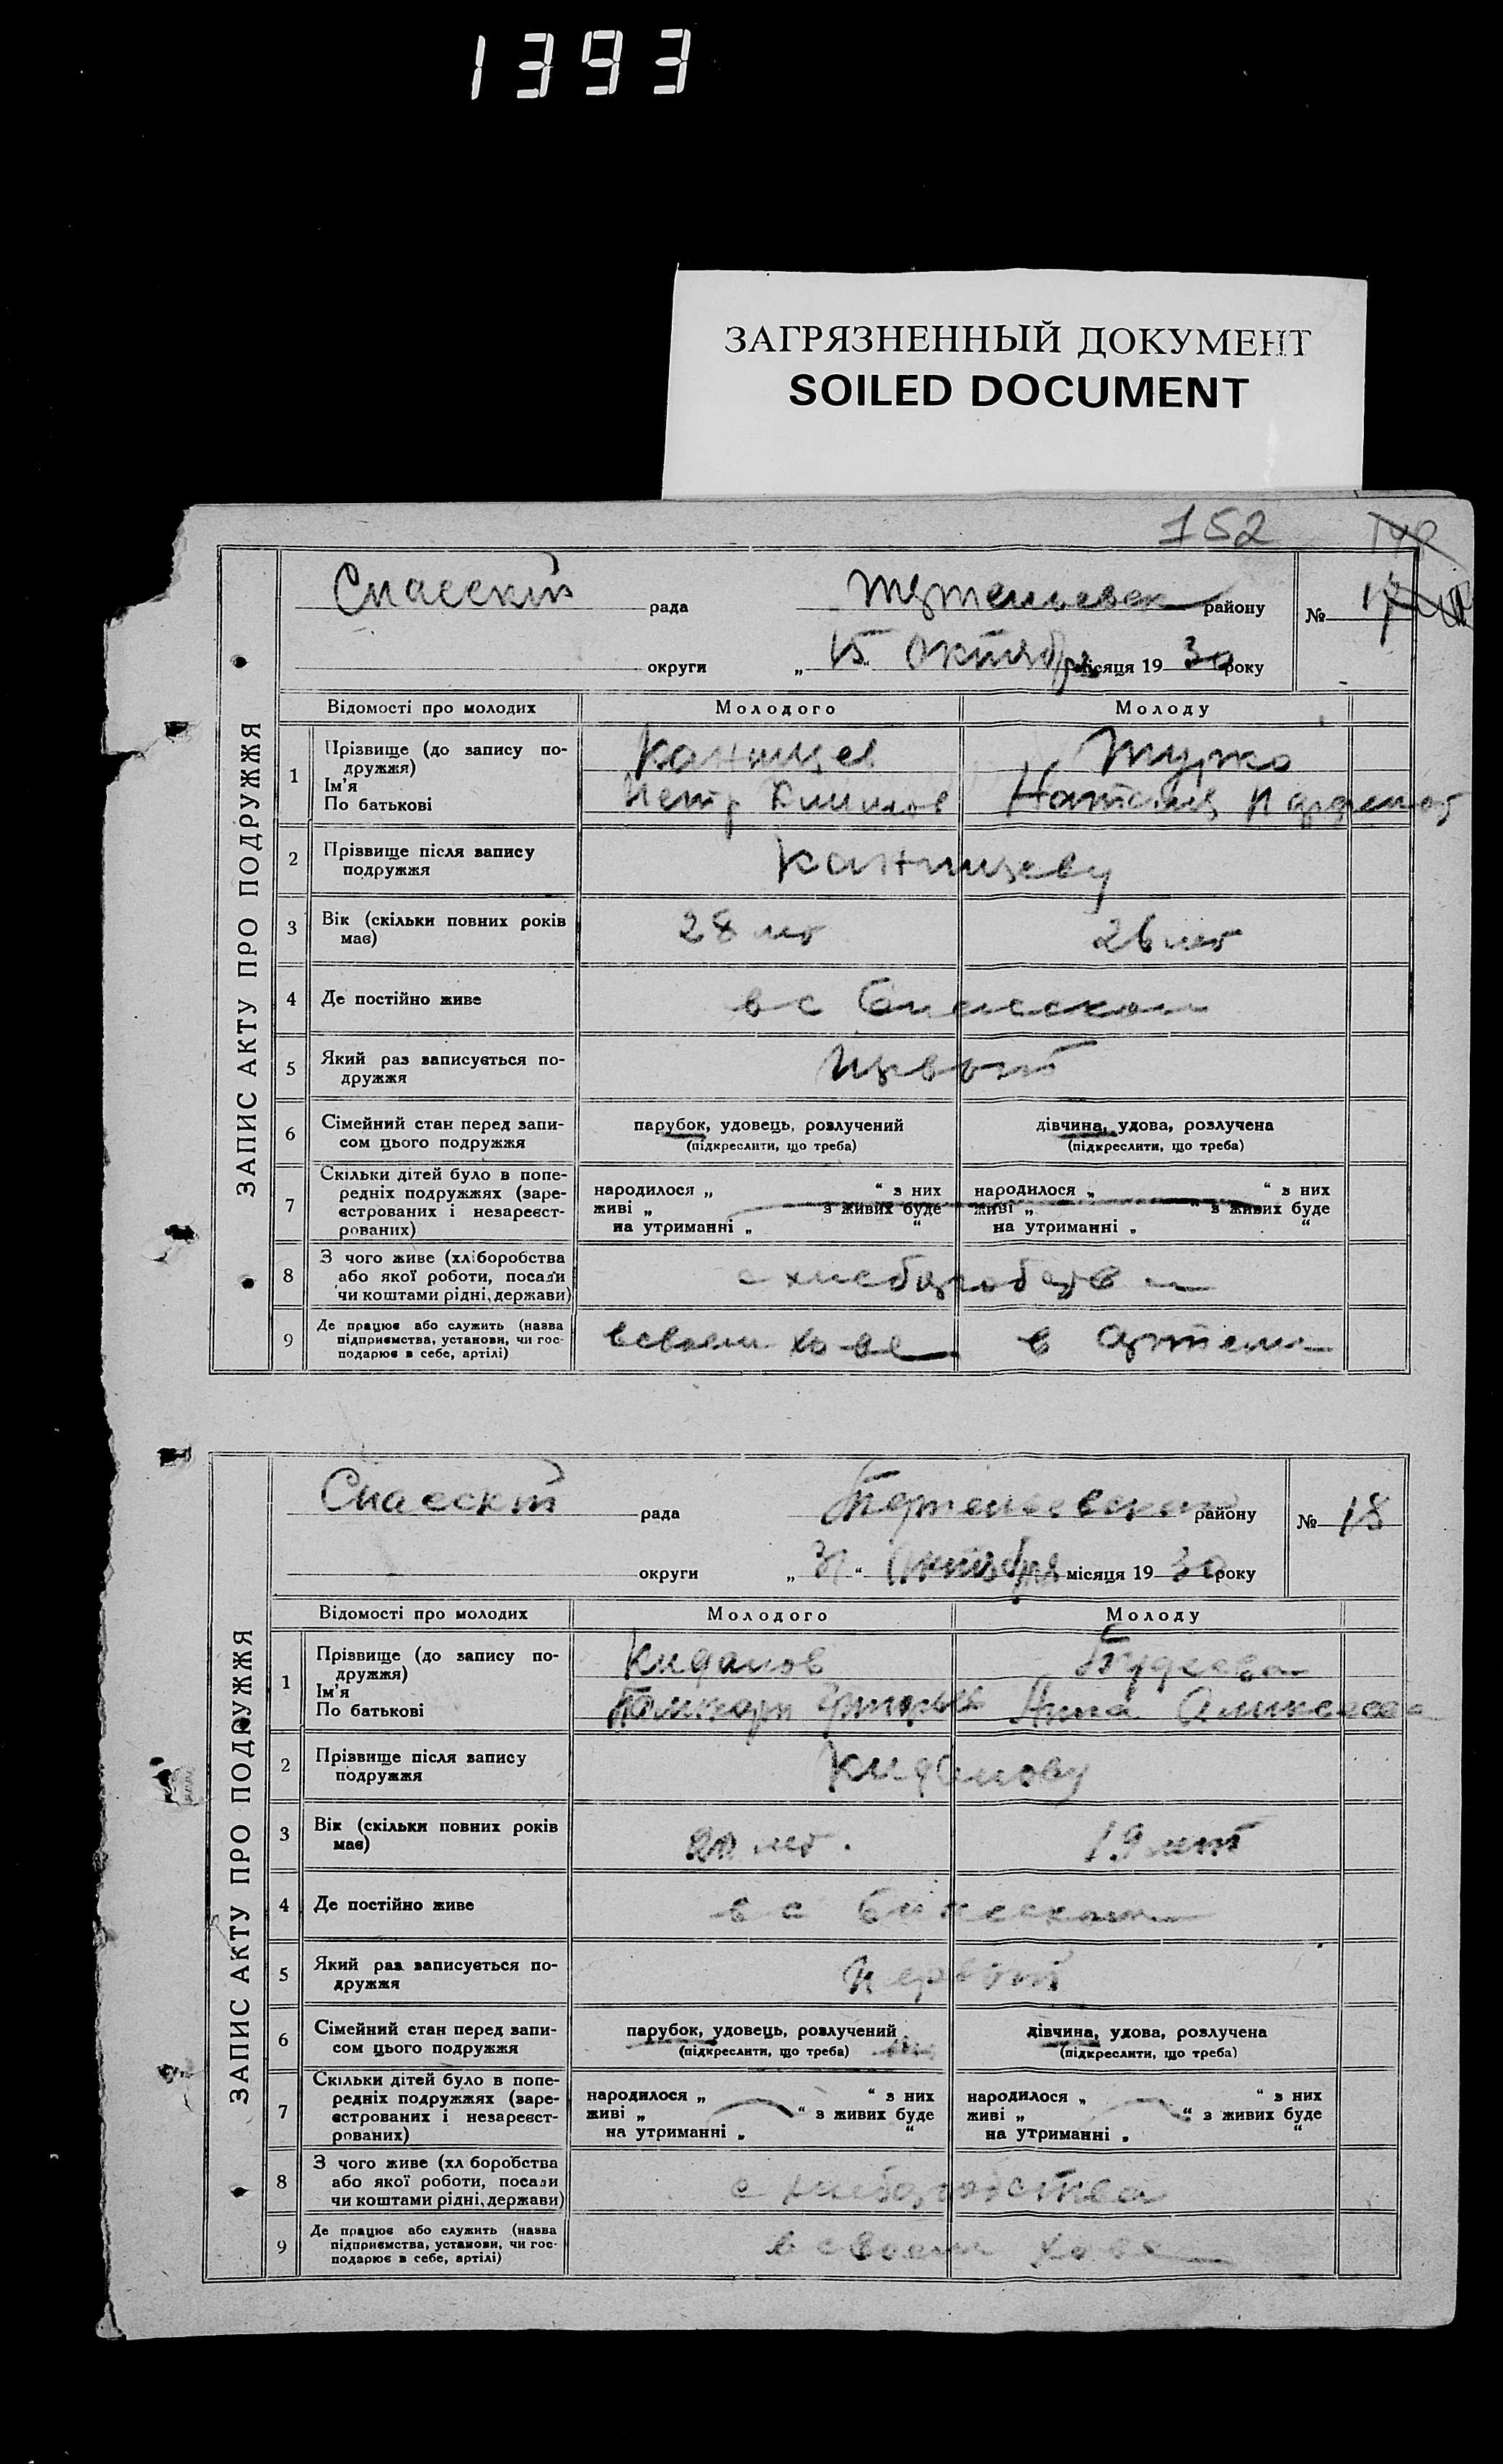 1393
ЗАГРЯЗНЕННЫЙ ДОКУМЕНТ
SOILED DOCUMENT
152
ЗАПИС АКТУ ПРО ПОДРУЖЖЯ
Спасский рада району № 17
округи „ 15 “ Октября місяця 19 30 року
Відомості про молодих Молодого Молоду
1 Прізвище (до запису по-
дружжя)
Ім'я
По батькові
Канищев
Петр
Наталия
2 Прізвище після запису
подружжя
Канищеву
3 Вік (скільки повних років
має)
28 лет 26 лет
4 Де постійно живе
в с Спасском
5 Який раз записується по-
дружжя
Первый
6 Сімейний стан перед запи-
сом цього подружжя
парубок, удовець, розлучений
(підкреслити, що треба)
дівчина, удова, розлучена
(підкреслити, що треба)
7 Скільки дітей було в попе-
редніх подружжях (заре-
єстрованих і незареєст-
рованих)
народилося „ “ з них
живі „ “ з живих буде
на утриманні „ “
народилося „ “ з них
живі „ “ з живих буде
на утриманні „ “
8 З чого живе (хліборобства
або якої роботи, посади
чи коштами рідні, держави)
9 Де працює або служить (назва
підприємства, установи, чи гос-
подарює в себе, артілі)
в своем хо-ве в Артели
ЗАПИС АКТУ ПРО ПОДРУЖЖЯ
Спасский рада району № 18
округи „ “ Октября місяця 19 30 року
Відомості про молодих Молодого Молоду
1 Прізвище (до запису по-
дружжя)
Ім'я
По батькові
Кидалов
Анна
2 Прізвище після запису
подружжя
Кидалову
3 Вік (скільки повних років
має)
лет. 19 лет
4 Де постійно живе
в с Спасском
5 Який раз записується по-
дружжя
Первый
6 Сімейний стан перед запи-
сом цього подружжя
парубок, удовець, розлучений
(підкреслити, що треба)
дівчина, удова, розлучена
(підкреслити, що треба)
7 Скільки дітей було в попе-
редніх подружжях (заре-
єстрованих і незареєст-
рованих)
народилося „ “ з них
живі „ “ з живих буде
на утриманні „ “
народилося „ “ з них
живі „ “ з живих буде
на утриманні „ “
8 З чого живе (хл боробства
або якої роботи, посади
чи коштами рідні, держави)
9 Де працює або служить (назва
підприємства, установи, чи гос-
подарює в себе, артілі)
в своем хо-ве